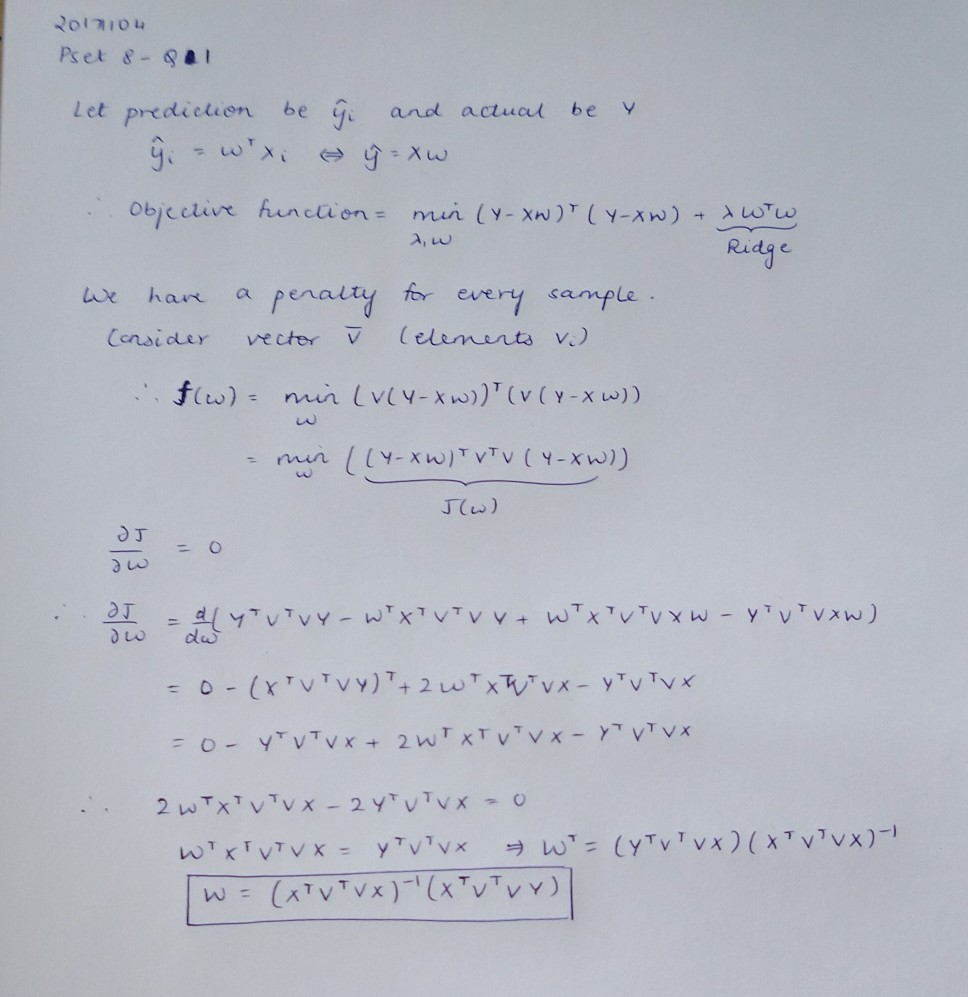 20171104
Pset 8 - Q 1
Let prediction be ŷᵢ and actual be Y
ŷᵢ = wᵀxᵢ ⇔ ŷ = Xw
∴ Objective function = min (Y-Xw)ᵀ(Y-Xw) + λwᵀw
λ,w Ridge
We have a penalty for every sample.
Consider vector v̄ (elements vᵢ)
∴ f(w) = min (V(Y-Xw))ᵀ(V(Y-Xw))
w
= min ((Y-Xw)ᵀVᵀV(Y-Xw))
w
J(w)
∂J/∂w = 0
∴ ∂J/∂w = d/dw(YᵀVᵀVY - wᵀXᵀVᵀVY + wᵀXᵀVᵀVXw - YᵀVᵀVXw)
= 0 - (XᵀVᵀVY)ᵀ + 2wᵀXᵀVᵀVX - YᵀVᵀVX
= 0 - YᵀVᵀVX + 2wᵀXᵀVᵀVX - YᵀVᵀVX
∴ 2wᵀXᵀVᵀVX - 2YᵀVᵀVX = 0
wᵀXᵀVᵀVX = YᵀVᵀVX ⇒ wᵀ = (YᵀVᵀVX)(XᵀVᵀVX)⁻¹
w = (XᵀVᵀVX)⁻¹(XᵀVᵀVY)